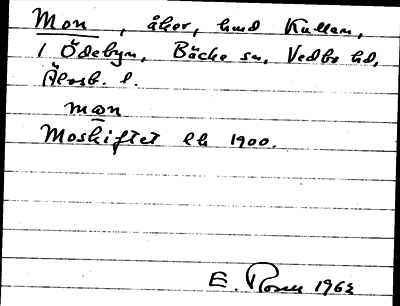 Mon, åker, hmd Kullen,
1 Ödebyn, Bäcke sn, Vedbo hd,
Älvsb. l.
mon
Moskiftet lk 1900.
E. Rosén 1962